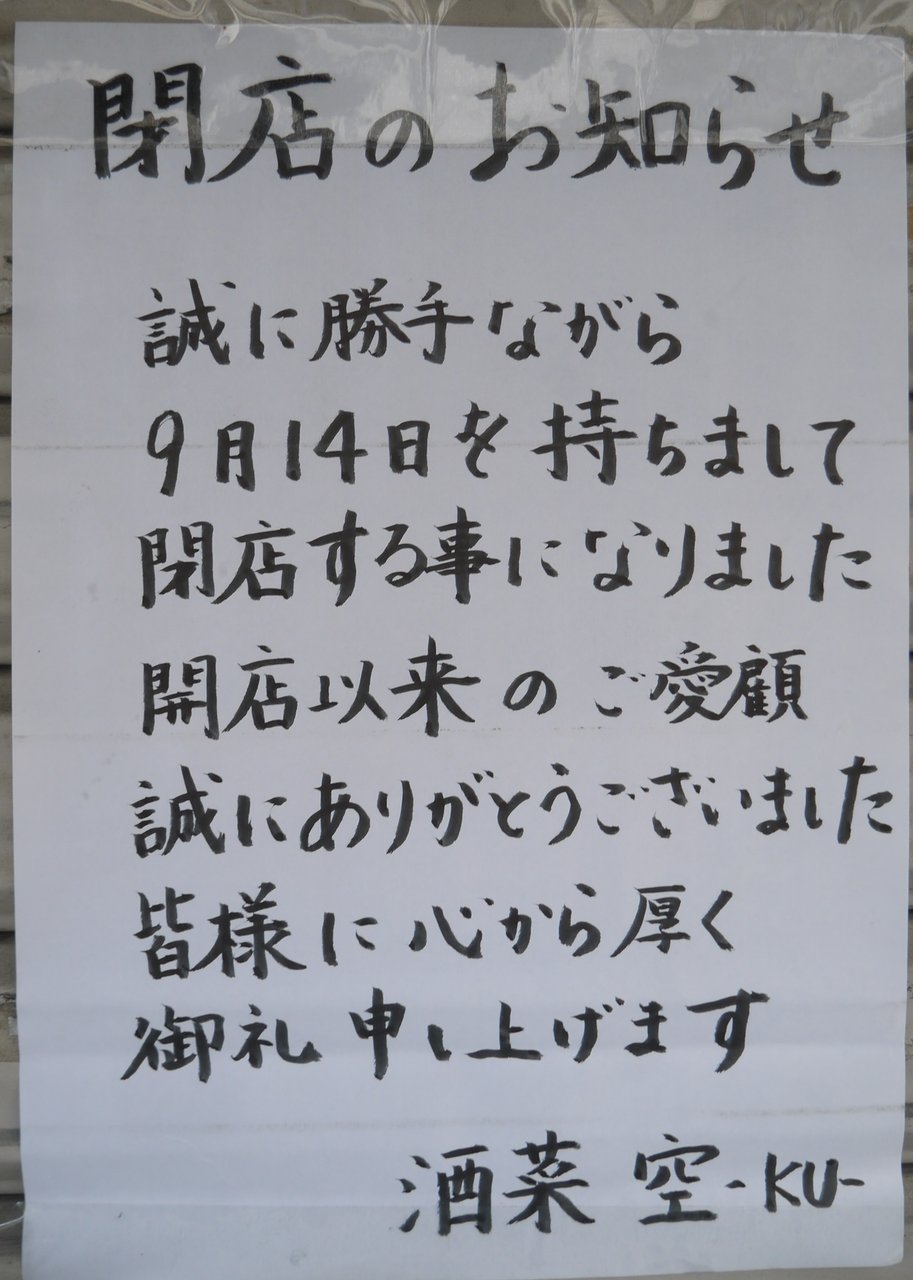 閉店のお知らせ
誠に勝手ながら
9月14日を持ちまして
閉店する事になりました
開店以来のご愛顧
誠にありがとうございました
皆様に心から厚く
御礼申し上げます
酒菜 空-KU-